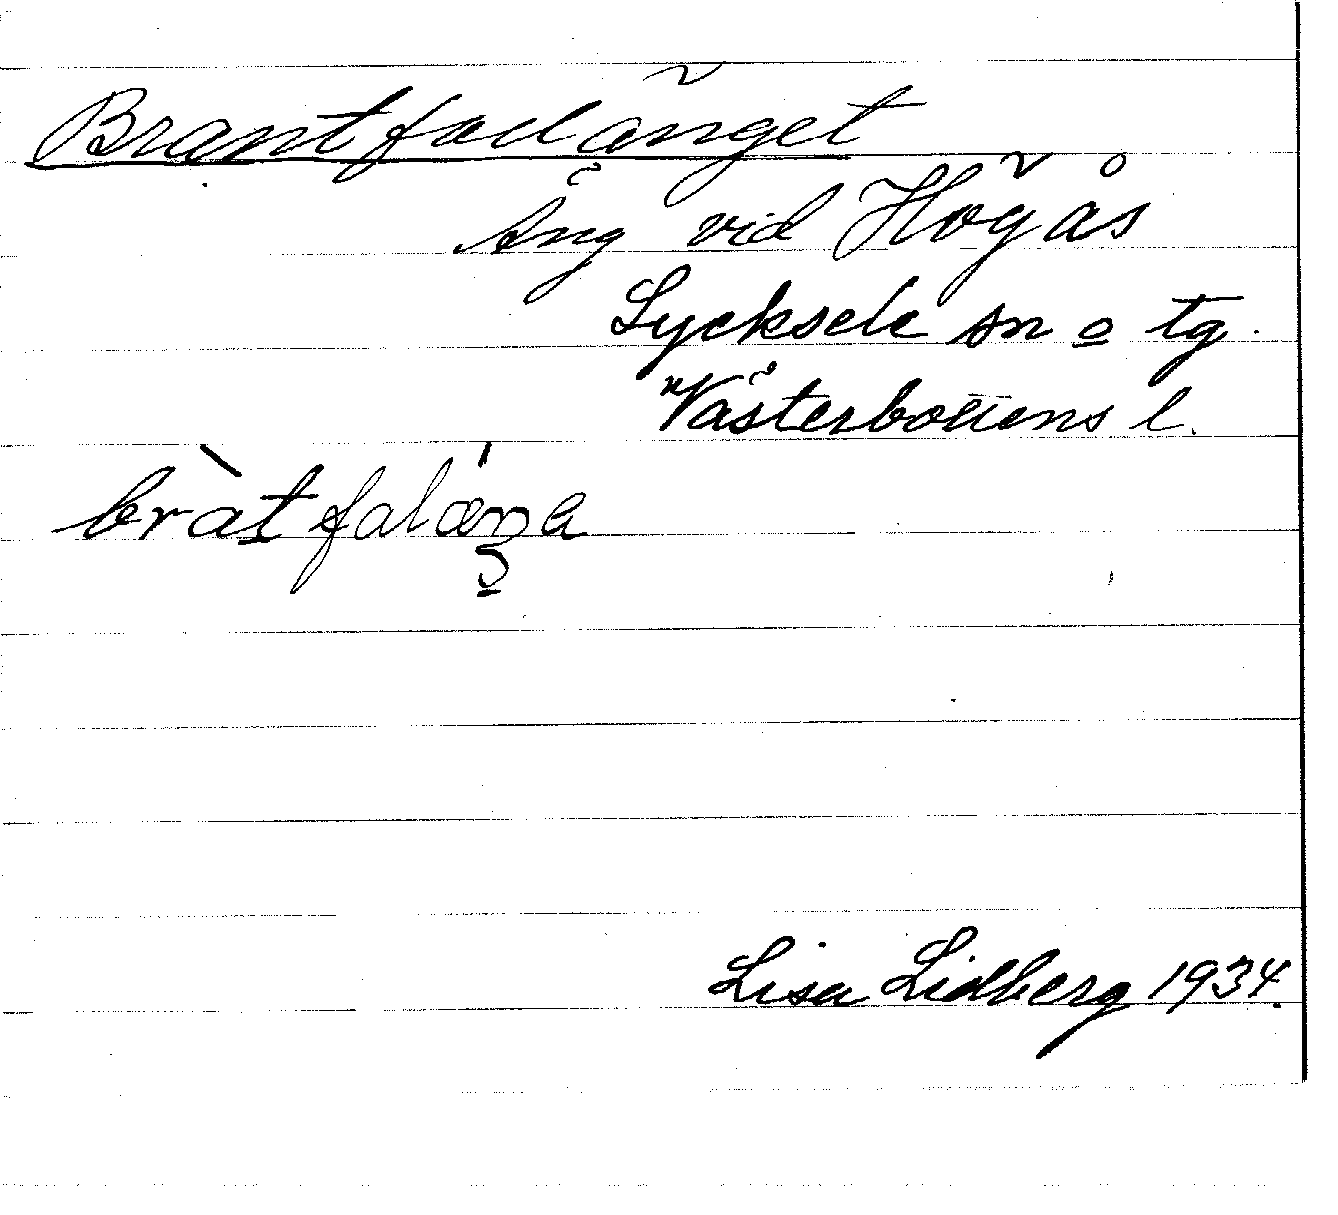 Brantfallänget
Äng vid Högås
Lycksele sn o tg.
Västerbottens l.
Lisa Lidberg 1934.